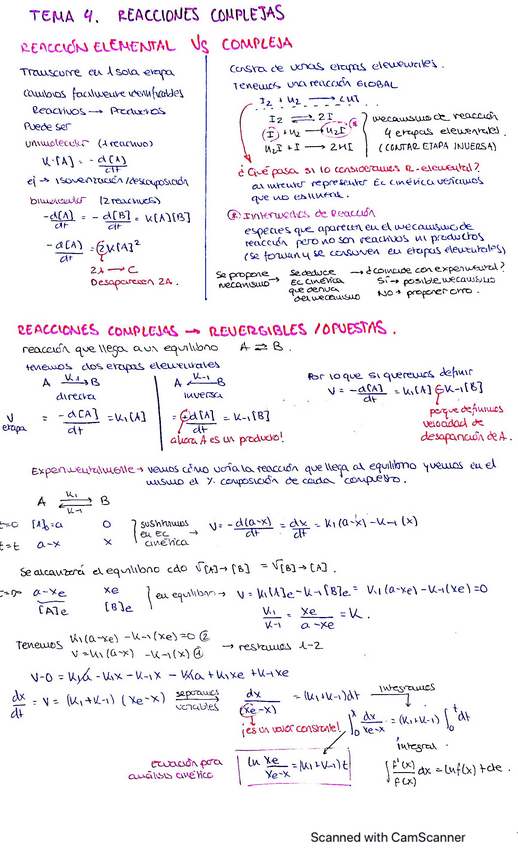 TEMA 4. REACCIONES COMPLEJAS
REACCIÓN ELEMENTAL VS COMPLEJA
Transcurre en 1 sola etapa
Cambios facilmente identificables
Reactivos → Productos
Puede ser
unimolecular (1 reactivo)
K·[A] = -d[A]/dt
ej → isomerización/descomposición
bimolecular (2 reactivos)
-d[A]/dt = -d[B]/dt = K[A][B]
-d[A]/dt = 2K[A]²
2A → C
Desaparecen 2A.
Consta de varias etapas elementales.
Tenemos una reacción GLOBAL
I2 + H2 → 2HI
I2 ⇌ 2I
I + H2 → H2I
H2I + I → 2HI
mecanismo de reacción
4 etapas elementales.
(CONTAR ETAPA INVERSA)
¿Qué pasa si lo consideramos R. elemental?
al intentar representar Ec cinética veríamos
que no es lineal.
Intermedios de Reacción
especies que aparecen en el mecanismo de
reacción pero no son reactivos ni productos
(se forman y se consumen en etapas elementales)
Se propone mecanismo → Se deduce Ec cinética que deriva del mecanismo → ¿coincide con experimental?
Sí → posible mecanismo
No → proponer otro.
REACCIONES COMPLEJAS → REVERSIBLES / OPUESTAS.
reacción que llega a un equilibrio A ⇌ B.
tenemos dos etapas elementales
A K1→ B
directa
A ←K-1 B
inversa
V etapa = -d[A]/dt = K1[A]
= +d[A]/dt = K-1[B]
ahora A es un producto!
Por lo que si queremos definir
V = -d[A]/dt = K1[A] - K-1[B]
porque definimos
velocidad de
desaparición de A.
Experimentalmente → vemos cómo varía la reacción que llega al equilibrio y vemos en el
mismo el % composición de cada compuesto.
A K1 ⇌ K-1 B
t=0 [A]0=a 0
t=t a-x x
sustituimos en Ec cinética → V = -d(a-x)/dt = dx/dt = K1(a-x) - K-1(x)
Se alcanzará el equilibrio cdo V[A]→[B] = V[B]→[A].
t=∞ a-xe xe
[A]e [B]e
en equilibrio → V = K1[A]e - K-1[B]e = K1(a-xe) - K-1(xe) = 0
K1/K-1 = xe/a-xe = K.
Tenemos K1(a-xe) - K-1(xe) = 0 ②
V = K1(a-x) - K-1(x) ① → restamos 1-2
V-0 = K1a - K1x - K-1x - K1a + K1xe + K-1xe
dx/dt = V = (K1+K-1) (xe-x) separamos variables → dx/(xe-x) = (K1+K-1)dt integramos
¡es un valor constante!
∫0^x dx/xe-x = (K1+K-1) ∫0^t dt
ecuación para
análisis cinético
ln xe/xe-x = (K1+K-1)t
integral.
∫ f'(x)/f(x) dx = ln f(x) + cte.
Scanned with CamScanner